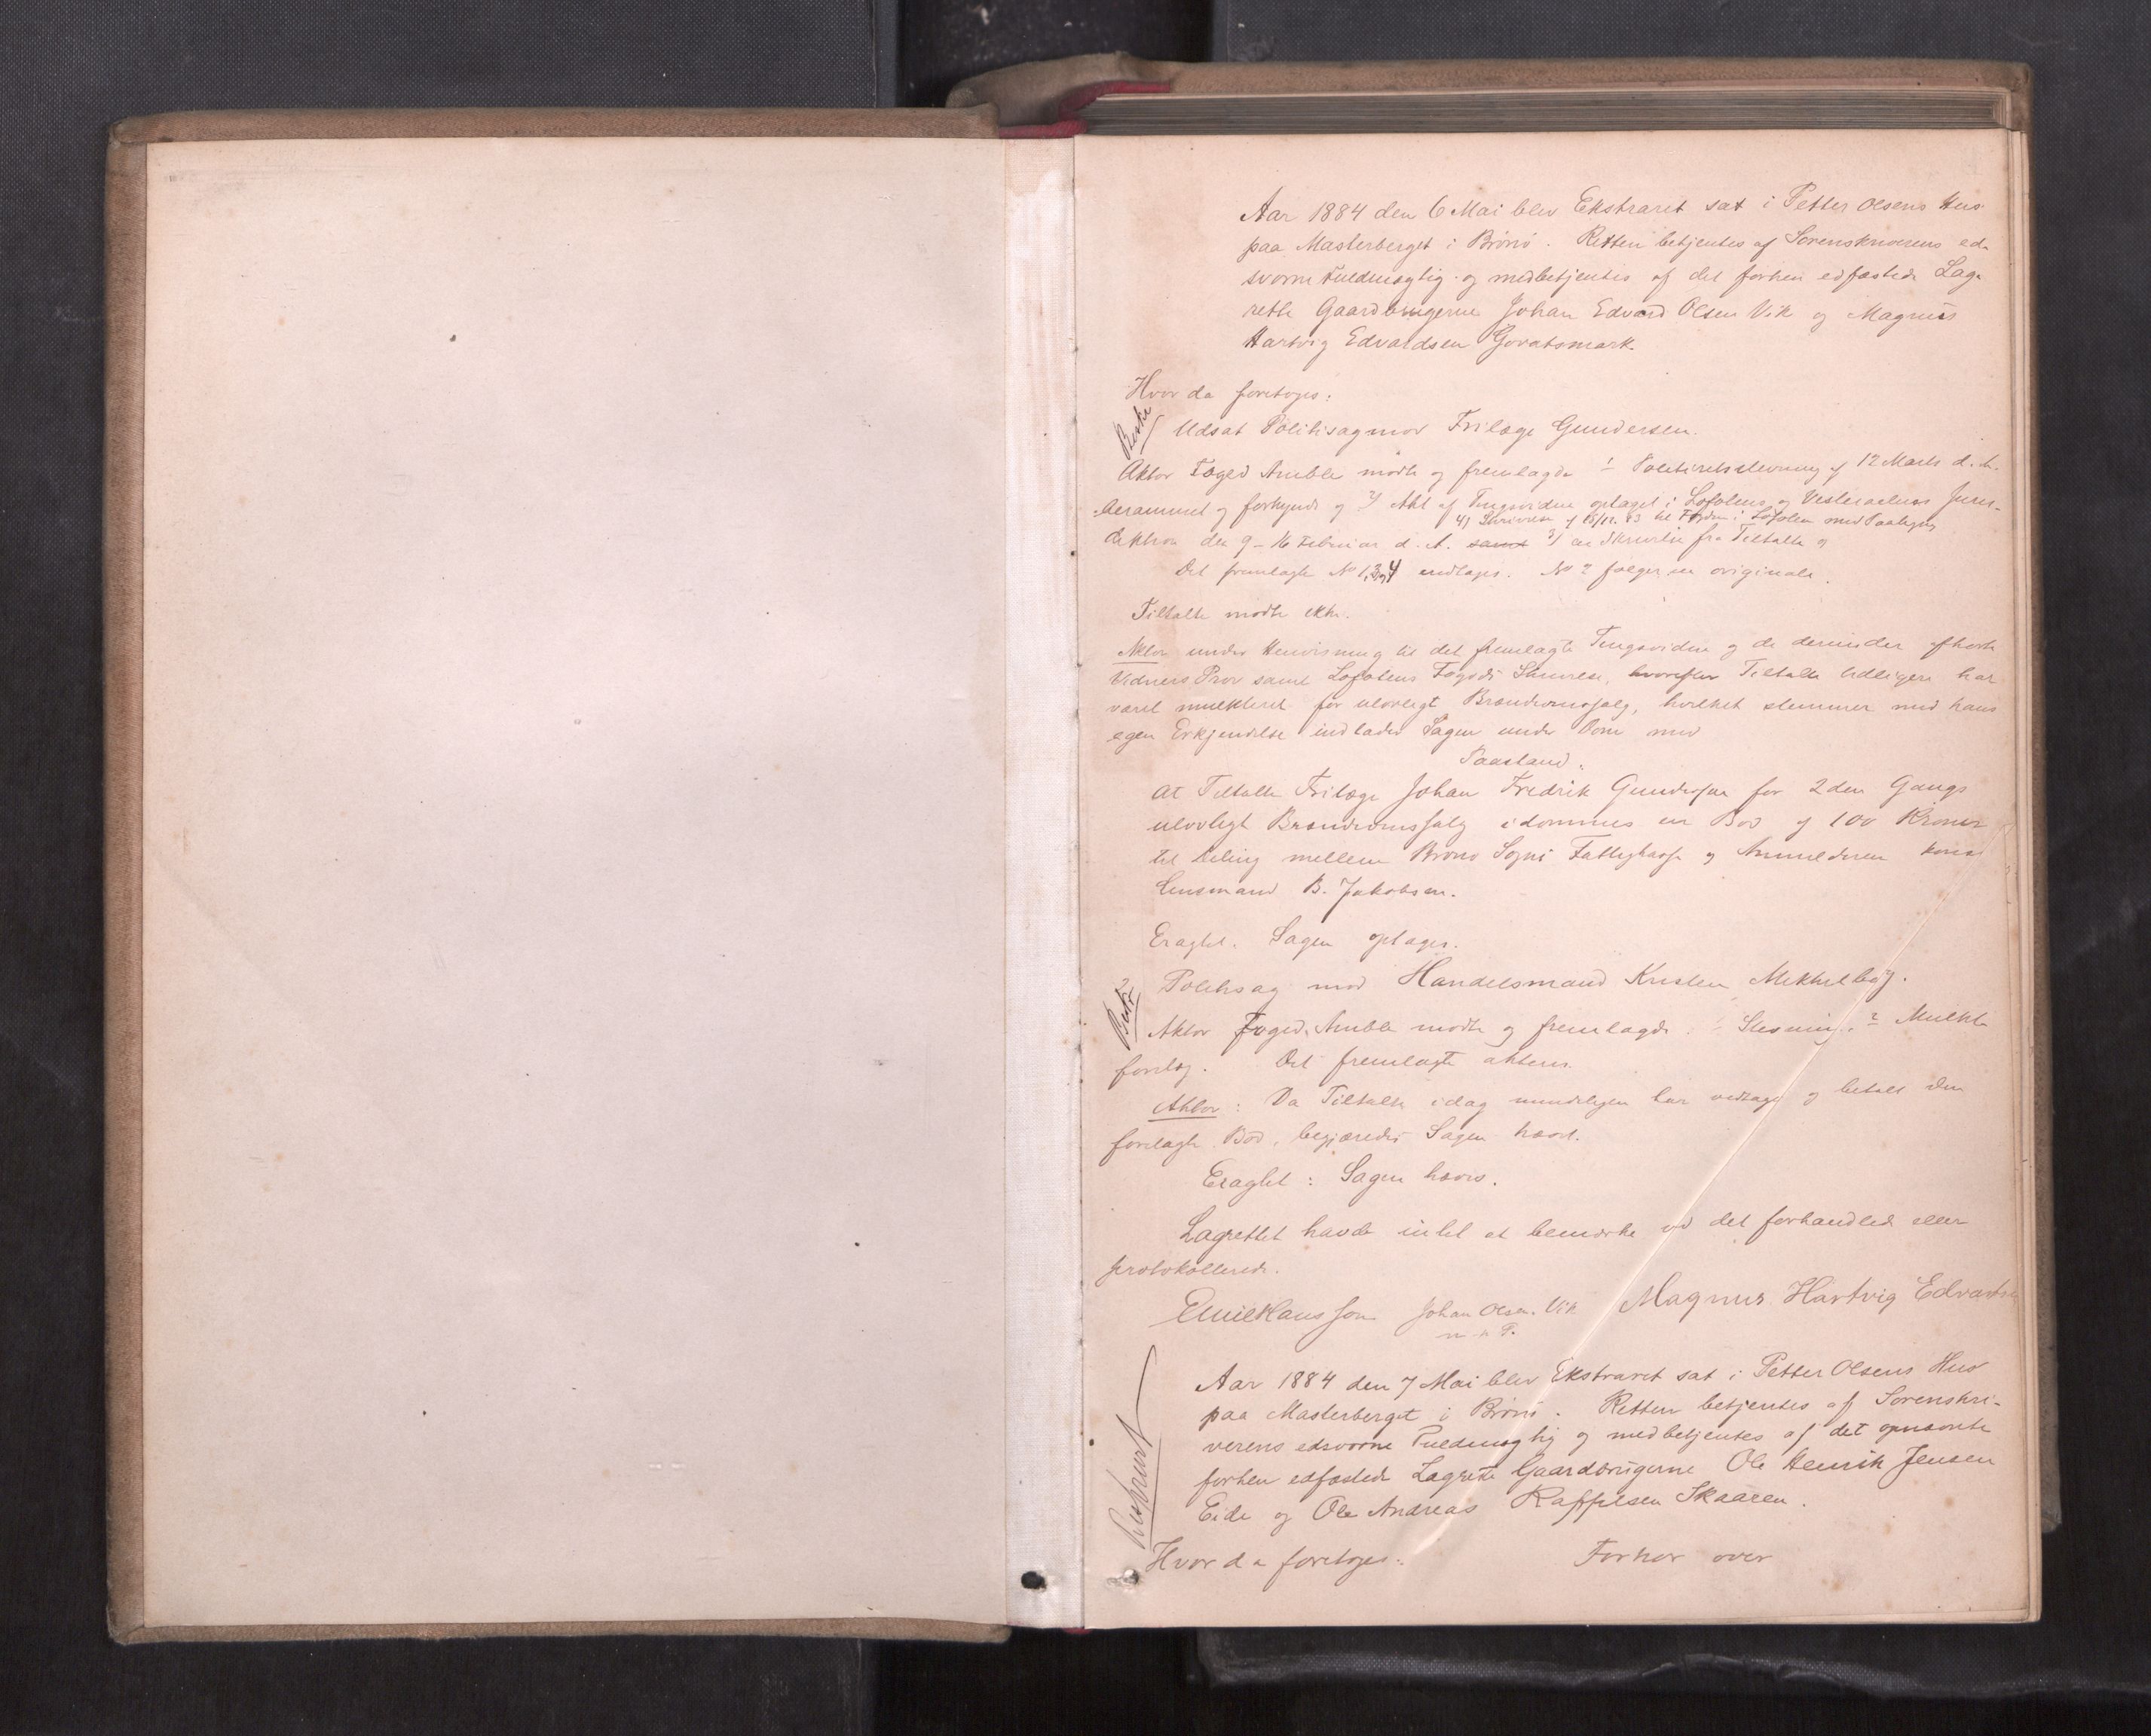 Aar 1884 den 6 Mai blev Ekstraret sat i Petter Olsens Hus
paa Masterberget i Brønø. Retten betjentes af Sorenskriverens ed-
svorne Fuldmægtig og medbetjentes af det forhen edfæstede Lag-
rette Gaardbrugerne Johan Edvard Olsen Vik og Magnus
Hartvig Edvardsen
Hvor da foretoges:
Udsat Politisag mod Frilæge Gundersen.
Aktor Foged Amble mødte og fremlagde 1 Politiretsstevning af 12 Marts d. A.
berammet og forkyndt og 2) Akt af Thingsvidne optaget i Lofotens og Vesteraalens Juris-
4) Skrivelse af til Fogden i Lofoten med Paategn
diktion den 9-16 Februar d. A. samt 3) en Skrivelse fra Tiltalte og
Det fremlagte No 1, 3, 4 indtages. No 2 følger in originale.
Tiltalte mødte ikke.
Aktor under Henvisning til det fremlagte Tingsvidne og de derunder afhørte
Vidners Prov samt Lofotens Fogeds Skrivelse, hvorefter Tiltalte tidligere har
været mulkteret for ulovligt Brændevinssalg, hvilket stemmer med hans
egen Erkjendelse indlader Sagen under Dom med
Paastand:
At Tiltalte Frilæge Johan Fredrik Gundersen for 2den Gangs
ulovligt Brændevinssalg idømmes en Bod af 100 Kroner
til Deling mellem Brønø Sogns Fattigkasse og Anmelderen konst
Lensmand B. Jakobsen.
Eragtet: Sagen optages.
Politisag mod Handelsmand Kristen Mikkelbøg.
Aktor Foged Amble mødte og fremlagde 1 Stevning 2 Mulkt-
forelæg. Det fremlagte akteres.
Aktor: Da Tiltalte idag mundtligen har vedtaget og betalt den
forelagte Bod, begjæredes Sagen hævet.
Eragtet: Sagen hæves.
Lagrettet havde intet at bemærke ved det forhandlede eller
protokollerede.
Emil Hansson Johan Olsen Vik Magnus Hartvig Edvards
m. p. P.
Aar 1884 den 7 Mai blev Ekstraret sat i Petter Olsens Hus
paa Masterberget i Brønø. Retten betjentes af Sorenskri-
verens edsvorne Fuldmægtig og medbetjentes af det opnævnte
forhen edfæstede Lagrette Gaardbrugerne Ole Henrik Jensen
Eide og Ole Andreas Raffelsen Skaaren.
Hvor da foretoges: Forhør over